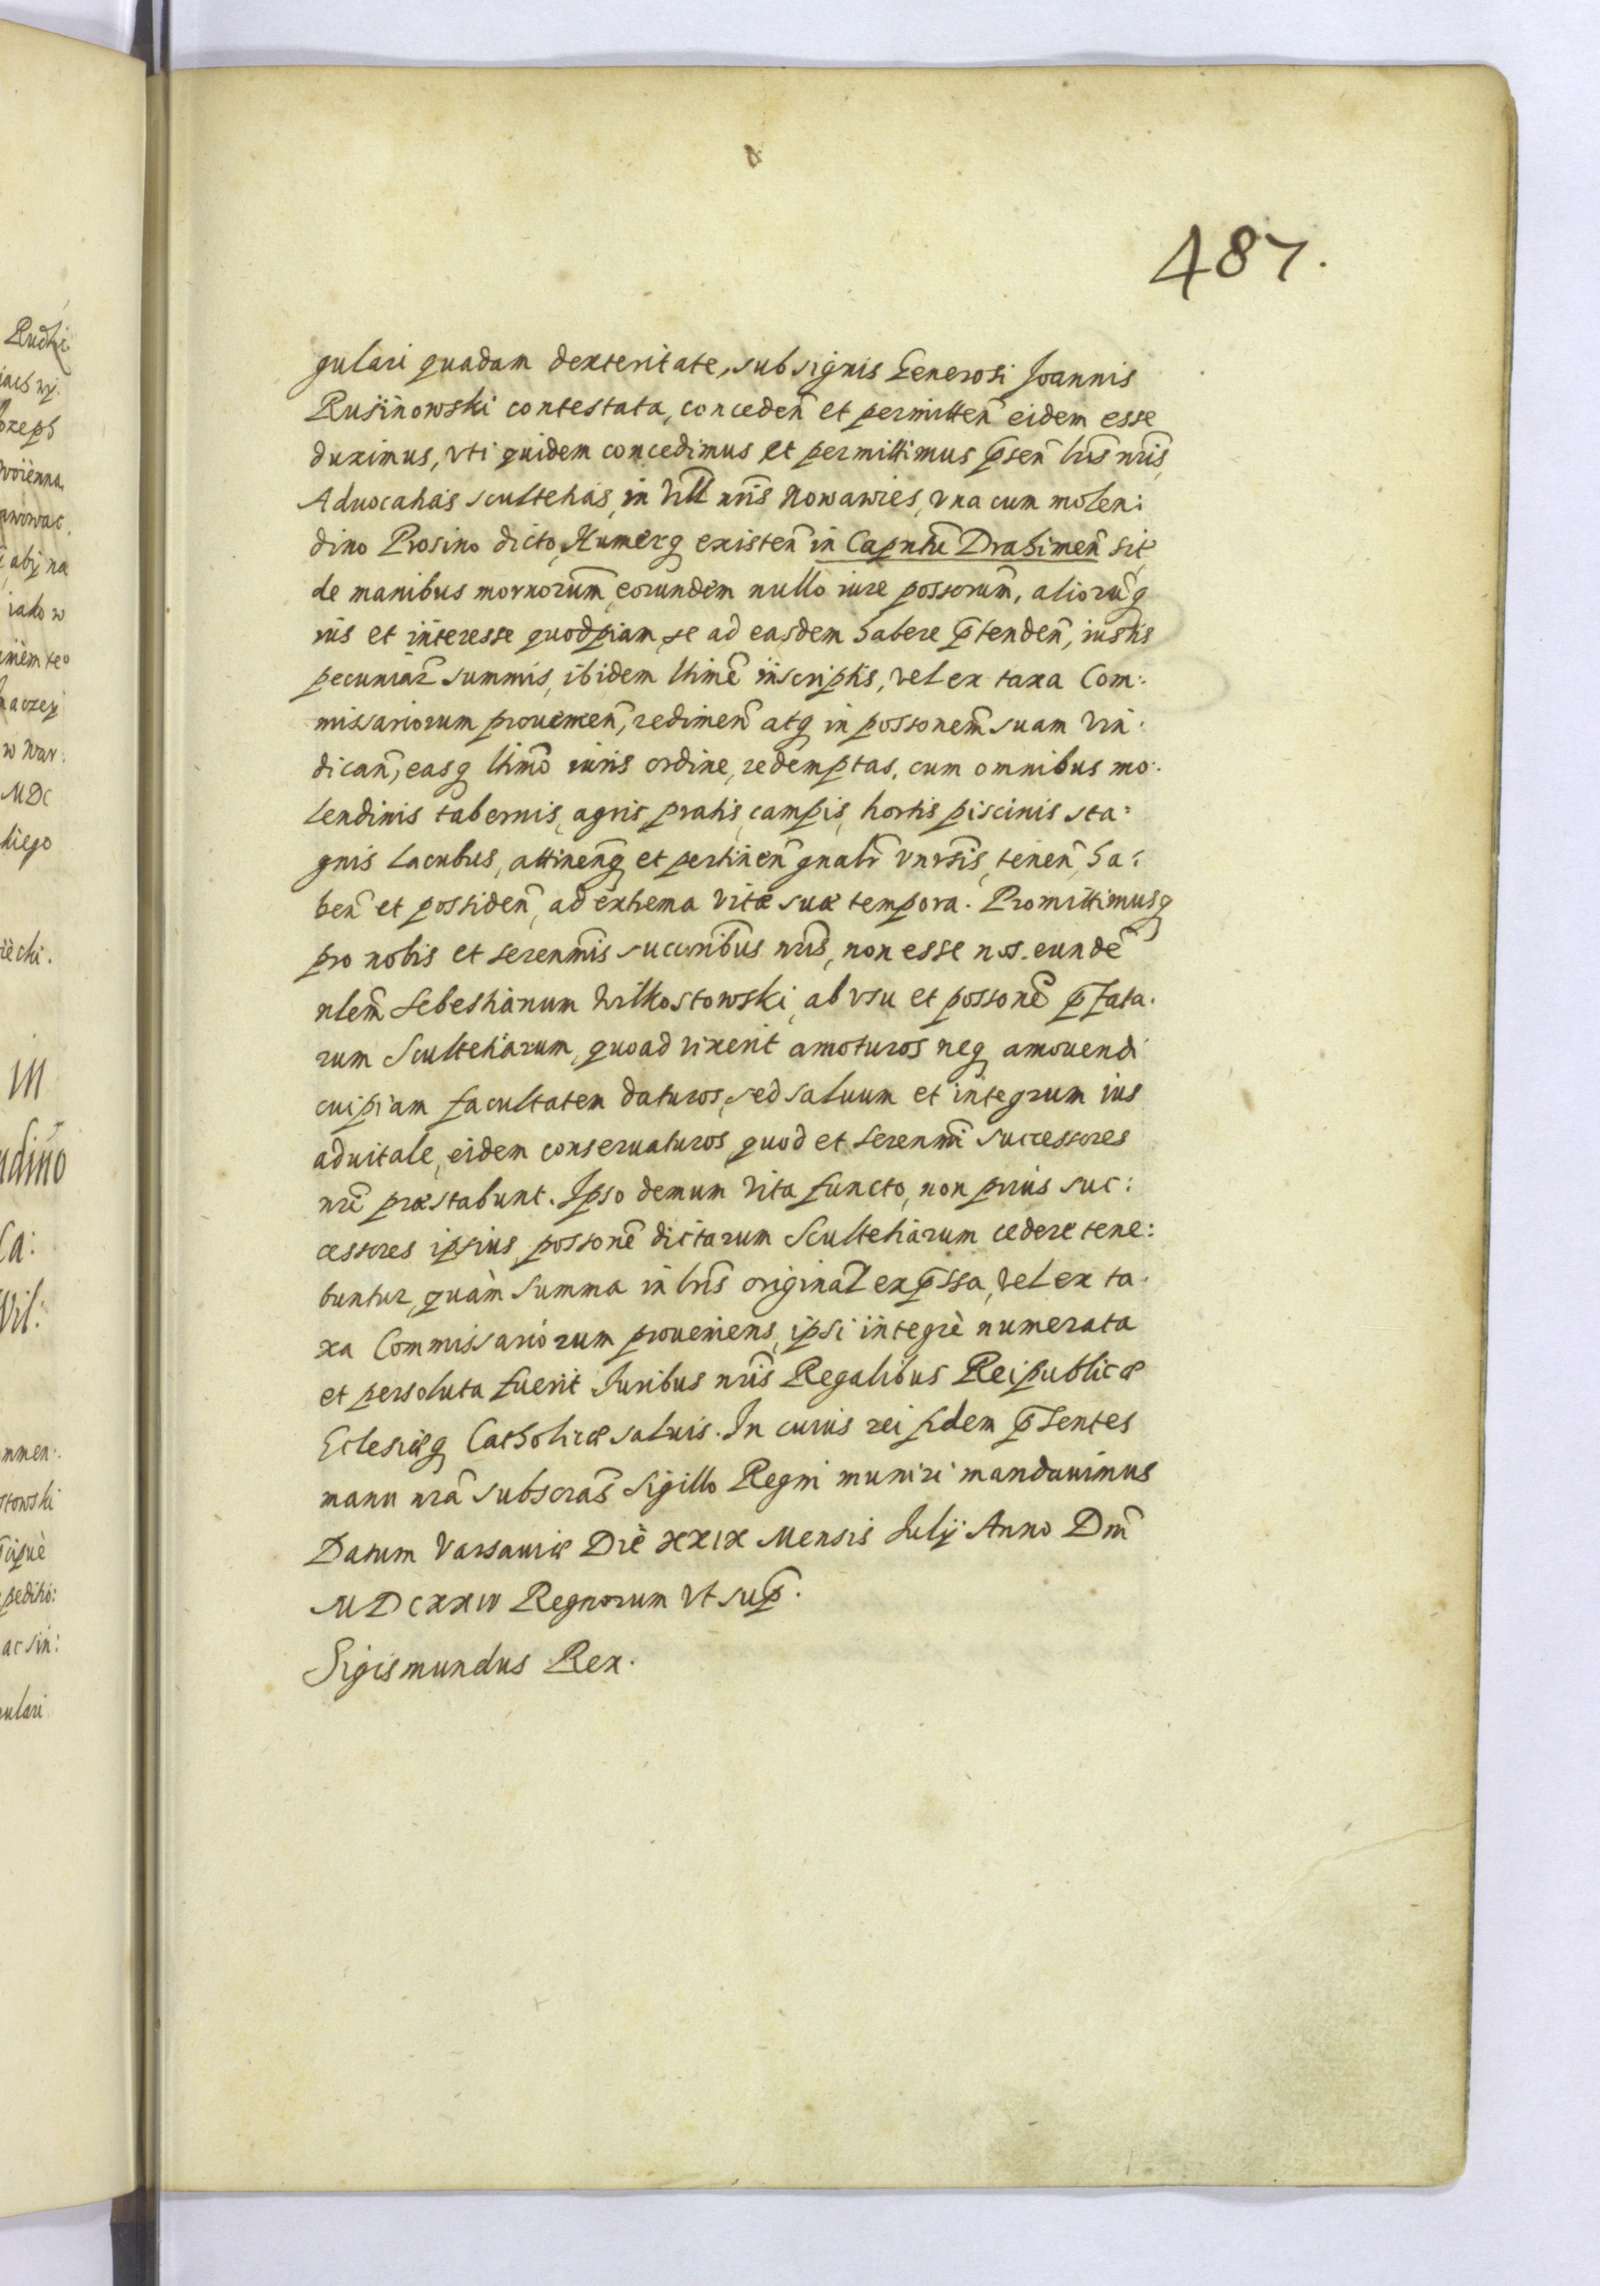 487.
gulari quadam dexteritate, sub signis Generosi Joannis
Rusinowski contestata, conceden̄ et permitten̄ eidem esse
duximus, vti quidem concedimus et permittimus p̄sen̄ lr̄is nr̄is,
Aduocatias scultetias, in Vill nr̄is Nowawies, vna cum molen:
dino Prosino dicto, Numerq existen̄ in Capntū Drahimen̄ sit
de manibus mornorum̄, eorundem nullo iure possorum̄, aliorūq
ius et interesse quodpiam, se ad easdem habere p̄tenden̄, iustis
pecuniar̄ summis, ibidem ltimē inscriptis, vel ex taxa Com:
missariorum prouenien̄, redimen̄ atq in possonem̄ suam vin:
dican̄, easq ltimō iuris ordine, redemptas, cum omnibus mo:
lendinis tabernis, agris pratis, campis, hortis piscinis sta:
gnis Lacubus, attinen̄q et pertinen̄ gnalr̄ vnrsīs, tenen̄, ha:
ben̄ et possiden̄, ad extrema vitæ suæ tempora. Promittimusq
pro nobis et serenm̄is succribūs nr̄is, non esse nos eundē
nlem̄ Sebestianum Wilkostowski, ab vsu et possonē p̄fata:
rum Scultetiarum, quoad vixerit amoturos neq amouendi
cuipiam facultatem daturos, sed saluum et integrum ius
aduitale, eidem conseruaturos, quod et serenm̄i successores
nr̄i præstabunt. Ipso demum vita functo, non prius suc:
cessores ipsius, possonē dictarum Scultetiarum cedere tene:
buntur, quàm summa in lr̄is original̄ exp̄ssa, vel ex ta:
xa Commissariorum proueniens, ipsi integrè numerata
et persoluta fuerit Iuribus nr̄is Regalibus Reipublicæ
Eclesiæq Catholicæ saluis. In cuius rei fidem p̄sentes
manu nr̄a subscras̄ Sigillo Regni muniri mandauimus
Datum Varsauiæ Die XXIX Mensis Iulÿ Anno Dm̄
MDCXXIV Regnorum vt sup̄.
Sigismundus Rex.